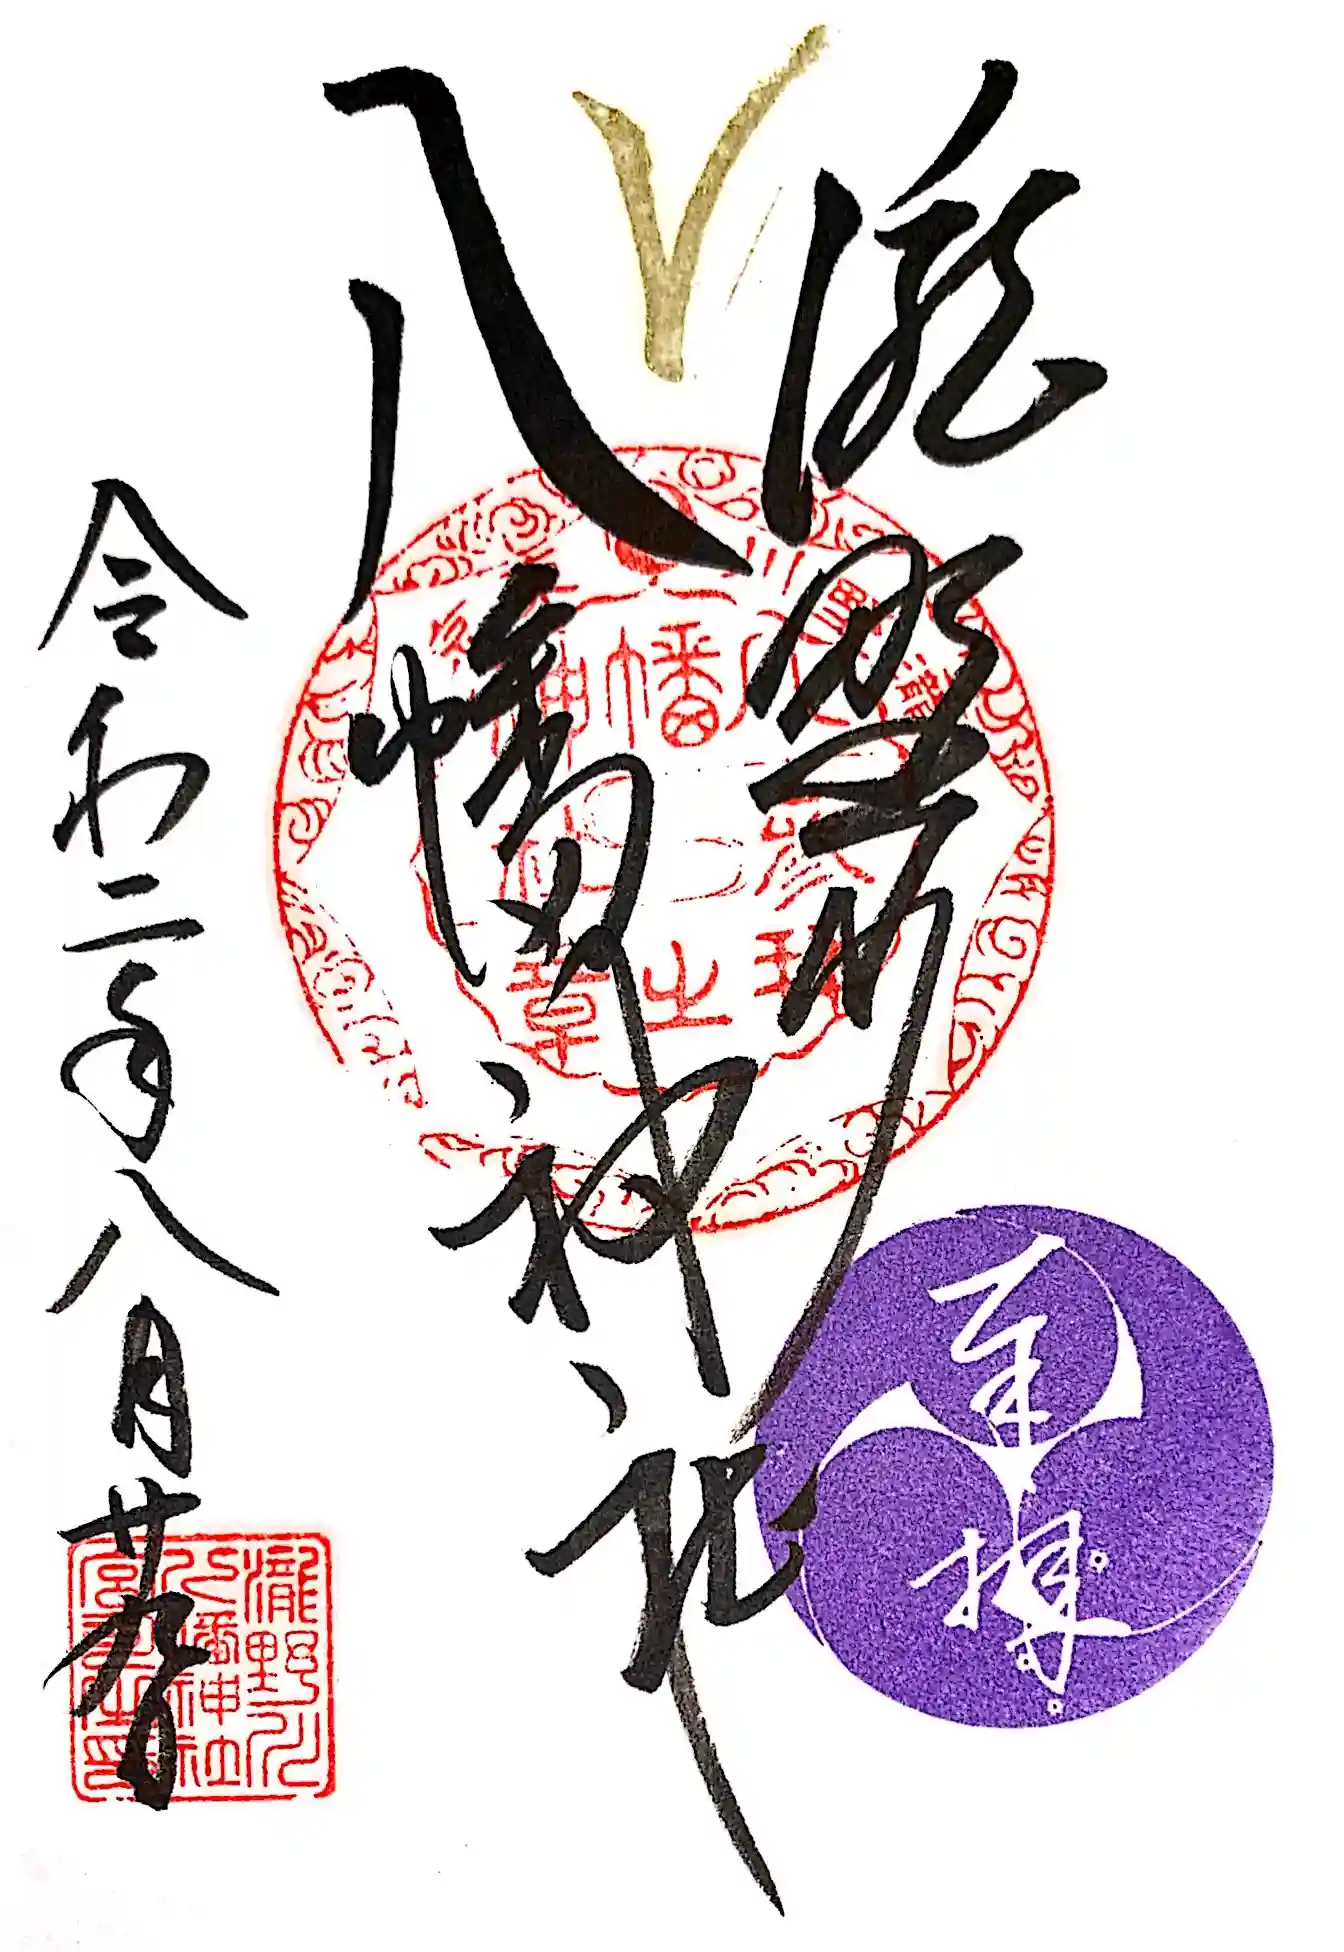 奉拝
瀧野川
八幡神社
令和二年八月廿
瀧野川
八幡神社
参拝之章
瀧野川
八幡神社
宮司之印